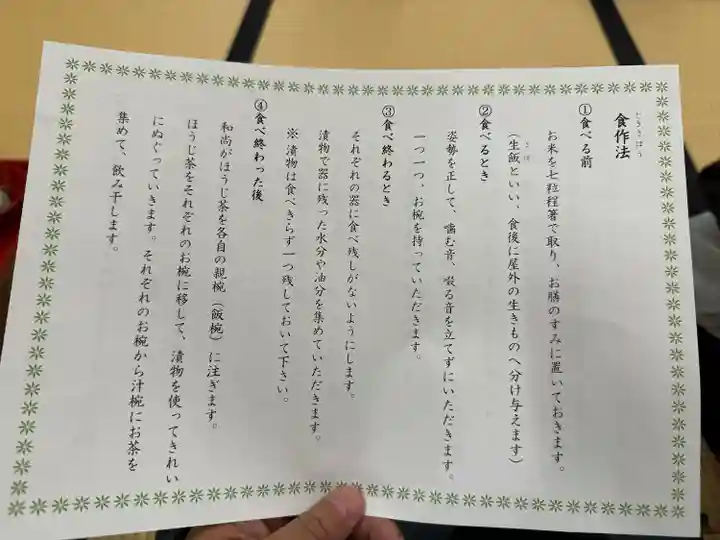 じきさほう
食作法
①食べる前
お米を七粒程箸で取り、お膳のすみに置いておきます。
さば
(生飯といい、食後に屋外の生きものへ分け与えます)
②食べるとき
姿勢を正して、噛む音、啜る音を立てずにいただきます。
一つ一つ、お椀を持っていただきます。
③食べ終わるとき
それぞれの器に食べ残しがないようにします。
漬物で器に残った水分や油分を集めていただきます。
※漬物は食べきらず一つ残しておいて下さい。
④食べ終わった後
和尚がほうじ茶を各自の親椀(飯椀)に注ぎます。
ほうじ茶をそれぞれのお椀に移して、漬物を使ってきれい
にぬぐっていきます。それぞれのお椀から汁椀にお茶を
集めて、飲み干します。